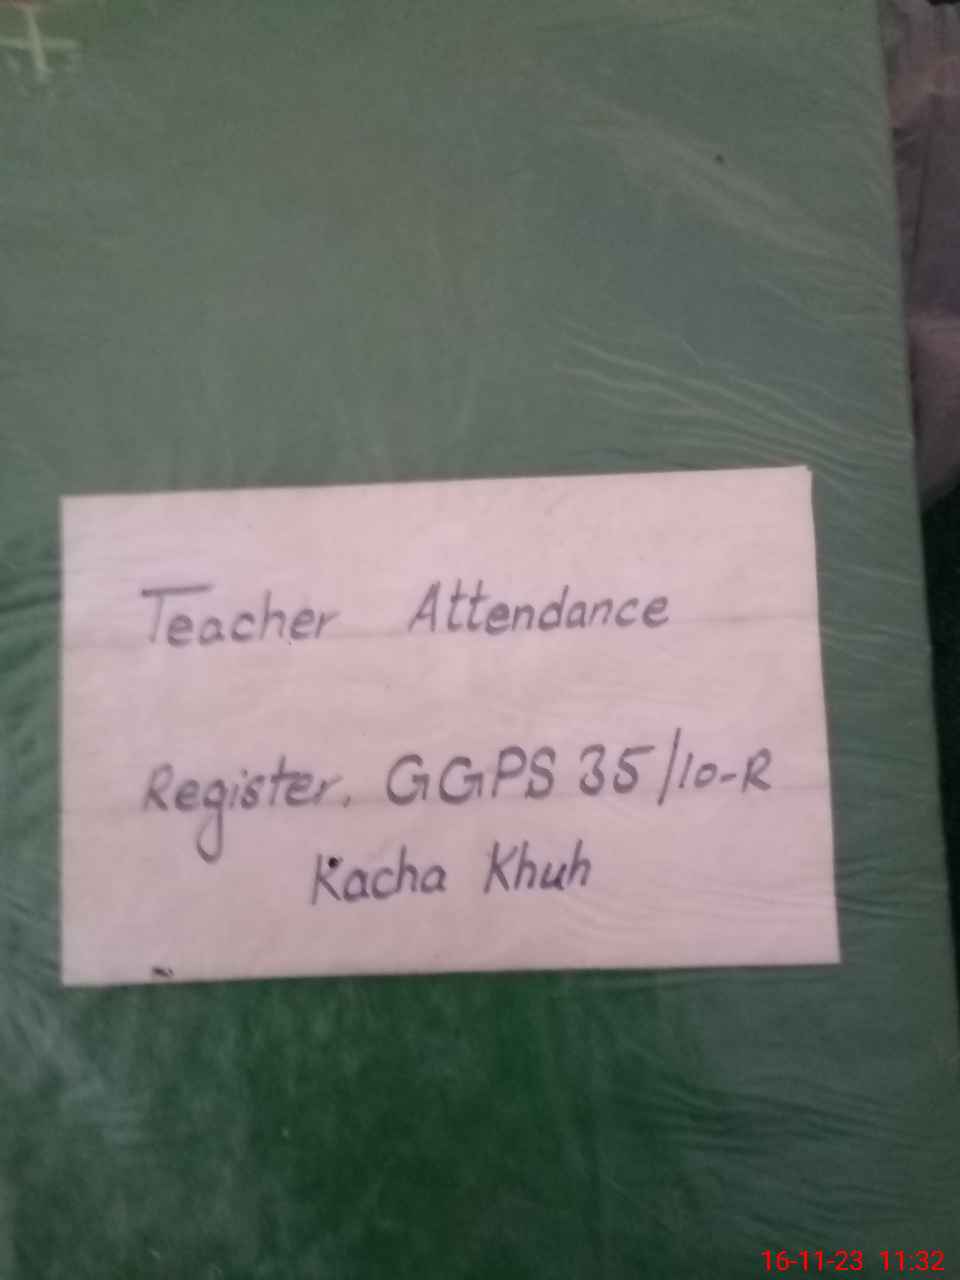 Teacher Attendance
Register. GGPS 35/10-R
Kacha Khuh
16-11-23 11:32